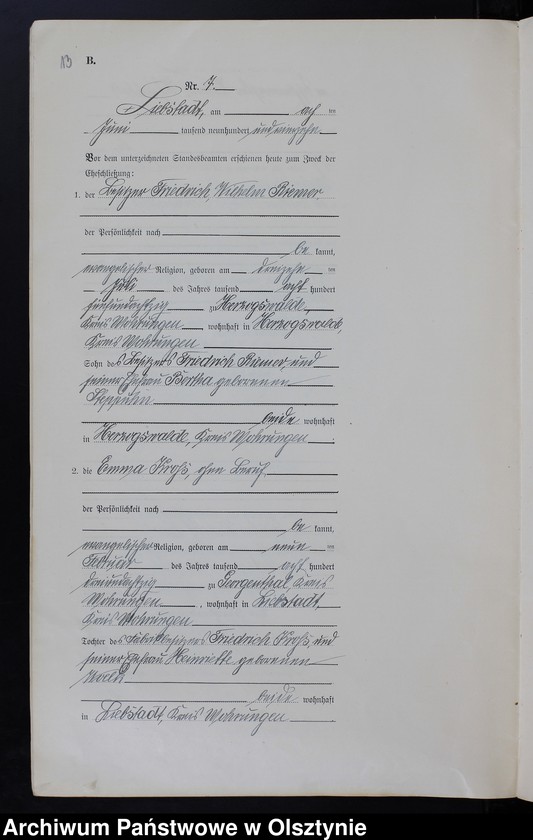 13 B.
Nr. 7.
Liebstadt, am acht ten
Juni tausend neunhundert und vierzehn
Vor dem unterzeichneten Standesbeamten erschienen heute zum Zweck der
Eheschließung:
1. der Besitzer Friedrich Wilhelm Riemer,
der Persönlichkeit nach
be kannt,
evangelischer Religion, geboren am dreizehn ten
des Jahres tausend acht hundert
fünfundachtzig zu Herzogswalde,
Kreis Mohrungen wohnhaft in Herzogswalde,
Kreis Mohrungen
Sohn des Besitzers Friedrich Riemer, und
seiner Ehefrau Bertha geborenen
beide wohnhaft
in Herzogswalde, Kreis Mohrungen.
2. die Emma Kroß, ohne Beruf
der Persönlichkeit nach
be kannt,
evangelischer Religion, geboren am neun ten
Februar des Jahres tausend acht hundert
dreiundachtzig zu Georgenthal, Kreis
Mohrungen, wohnhaft in Liebstadt,
Kreis Mohrungen
Tochter des Friedrich Kroß, und
seiner Ehefrau Henriette geborenen
beide wohnhaft
in Liebstadt, Kreis Mohrungen.
Archiwum Państwowe w Olsztynie